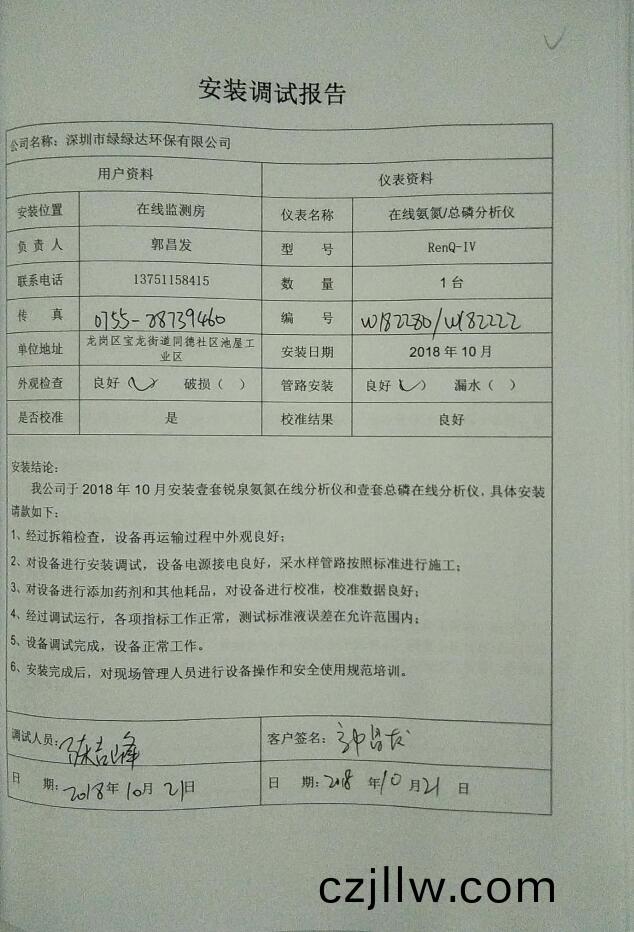 安装调试报告
公司名称：深圳市绿绿达环保有限公司
用户资料 仪表资料
安装位置 在线监测房 仪表名称 在线氨氮/总磷分析仪
负责人 郭昌发 型 号 RenQ-IV
联系电话 13751158415 数 量 1台
传 真 0755-28739460 编 号 W182280/W182222
单位地址 龙岗区宝龙街道同德社区池屋工业区 安装日期 2018年10月
外观检查 良好（✓） 破损（ ） 管路安装 良好（✓） 漏水（ ）
是否校准 是 校准结果 良好
安装结论：
我公司于2018年10月安装壹套锐泉氨氮在线分析仪和壹套总磷在线分析仪，具体安装
请款如下：
1、经过拆箱检查，设备再运输过程中外观良好；
2、对设备进行安装调试，设备电源接电良好，采水样管路按照标准进行施工；
3、对设备进行添加药剂和其他耗品，对设备进行校准，校准数据良好；
4、经过调试运行，各项指标工作正常，测试标准液误差在允许范围内；
5、设备调试完成，设备正常工作。
6、安装完成后，对现场管理人员进行设备操作和安全使用规范培训。
调试人员：陈吉峰 客户签名：
日 期：2018年10月21日 日 期：2018年10月21日
czjllw.com